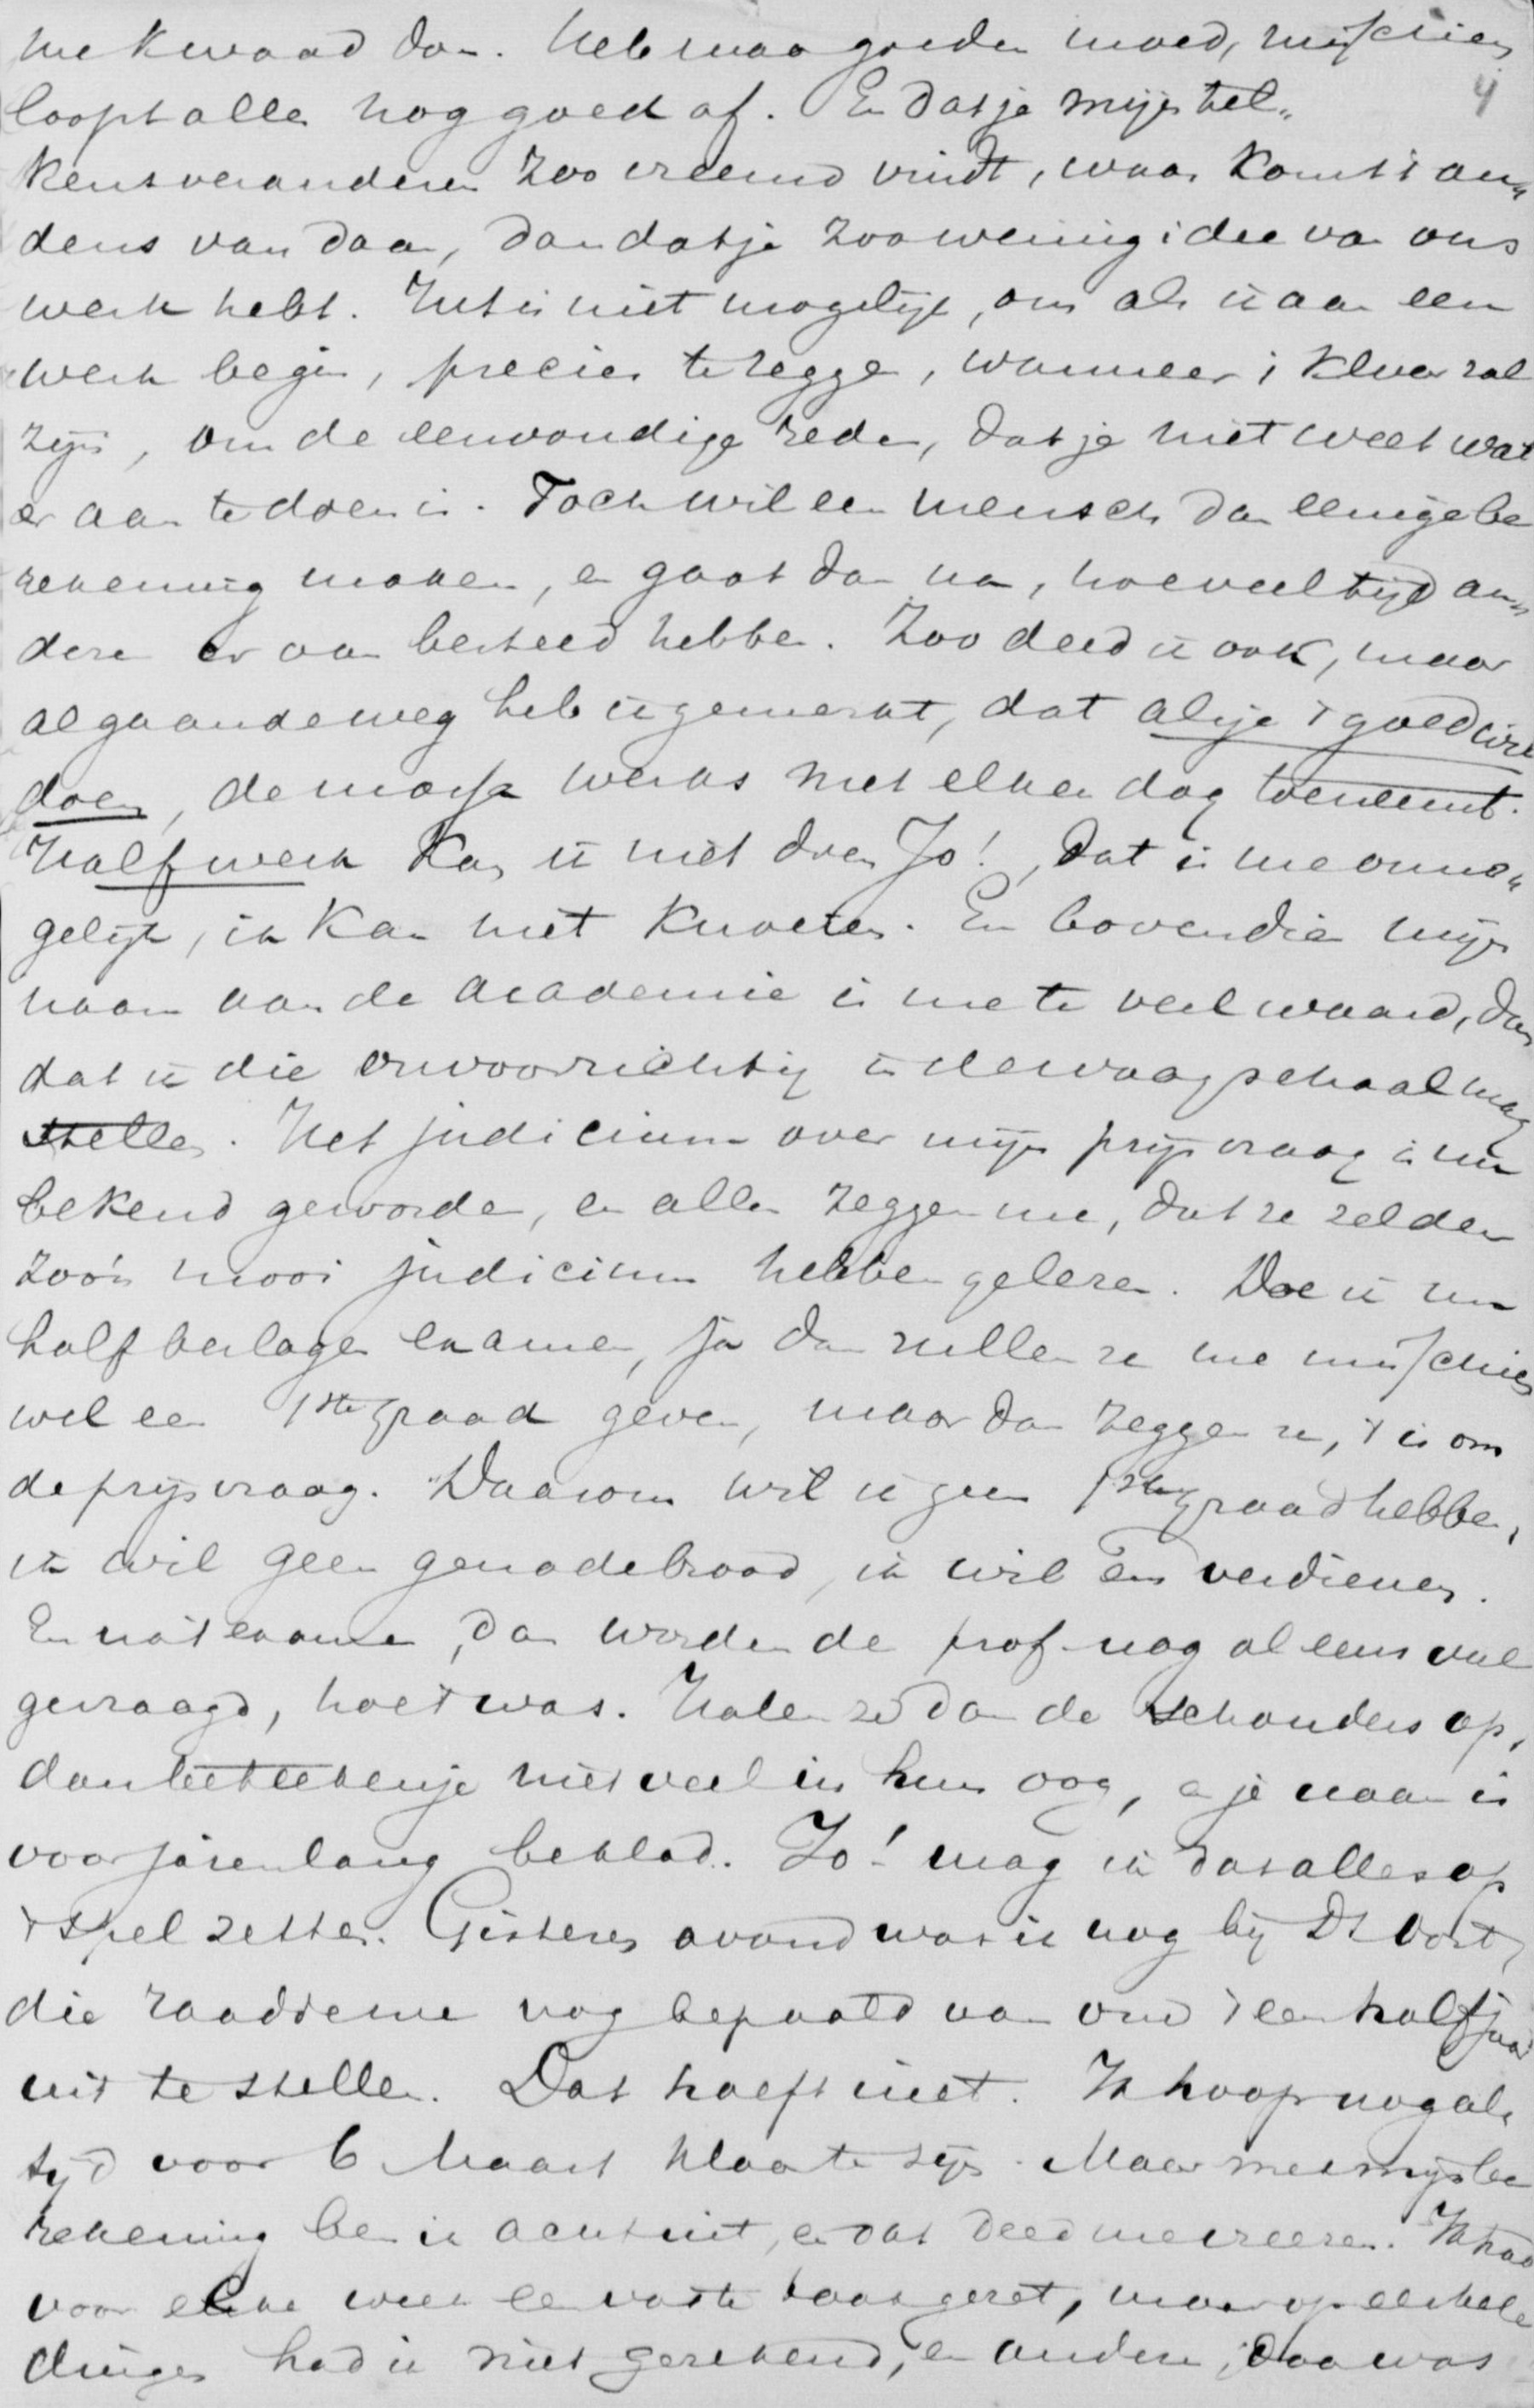 me kwaad doen. Heb maar goeden moed, misschien
4
loopt alles nog goed af. En dat je mijn tel-
kens veranderen zoo vreemd vindt, waar komt 't an-
ders van daan, dan dat je zoo weinig idee van ons
werk hebt. Het is niet mogelijk, om als ik aan een
werk begin, precies te zeggen, wanneer ik klaar zal
zijn, om de eenvoudige reden, dat je niet weet wat
er aan te doen is. Toch wil een mensch dan eenige be
rekening maken, en gaat dan na, hoeveel tijd an-
deren er aan besteed hebben. Zoo deed ik ook, maar
al gaandeweg heb ik gemerkt, dat als je 't goed wil
doen, de massa werks met elken dag toeneemt.
Half werk kan ik niet doen Jo!, dat is me onmo-
gelijk, ik kan niet knoeien. En bovendien mijn
naam aan de academie is me te veel waard, dan
dat ik die onvoorzichtig in de waagschaal mag
stellen. Het judicium over mijn prijsvraag is nu
bekend geworden, en allen zeggen me, dat ze zelden
zoo'n mooi judicium hebben gelezen. Doe ik nu
half verlagen examen, ja dan zullen ze me misschien
wel een 1sten graad geven, maar dan zeggen ze, 't is om
de prijsvraag. Daarom wil ik geen 1sten graad hebben,
ik wil geen genadebrood, ik wil 'em verdienen.
En na 't examen, dan worden de prof. nog al eens veel
gevraagd, hoe 't was. Halen ze dan de schouders op,
dan beteeken je niet veel in hun oog, en je naam is
voor jarenlang beklad. Jo! mag ik dat alles op
't spel zetten. Gisteren avond was ik nog bij Ds Vost,
die raadde me nog bepaald aan om 't een half jaar
uit te stellen. Dat hoeft niet. Ik hoop nog al
tijd voor 6 Maart klaar te zijn. Maar met mijn be
rekening ben ik achteruit, en dat deed me vreezen. Ik had
voor elke week een vaste taak gezet, maar op enkele
dingen had ik niet gerekend, en andere, daar was